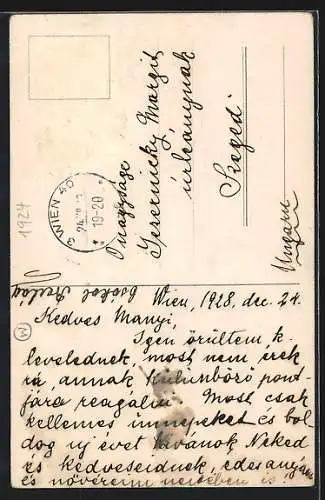 1924
3 WIEN 40
* 19-20 *
Őnagysága
Jeszenszky Margit
úrleánynak
Szeged
Ungarn
csókol
Wien, 1928. dec. 24.
Kedves Manyi,
Igen örültem k.
levelednek, most nem írok
rá, annak különböző pont-
jára reagálni. Most csak
kellemes ünnepeket és bol-
dog új évet kívánok Neked
és kedveseidnek, édesanyám
és nővéreim nevében is
W